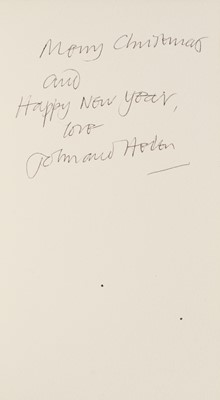 Merry Christmas
and
Happy New Year,
love
John and Helen